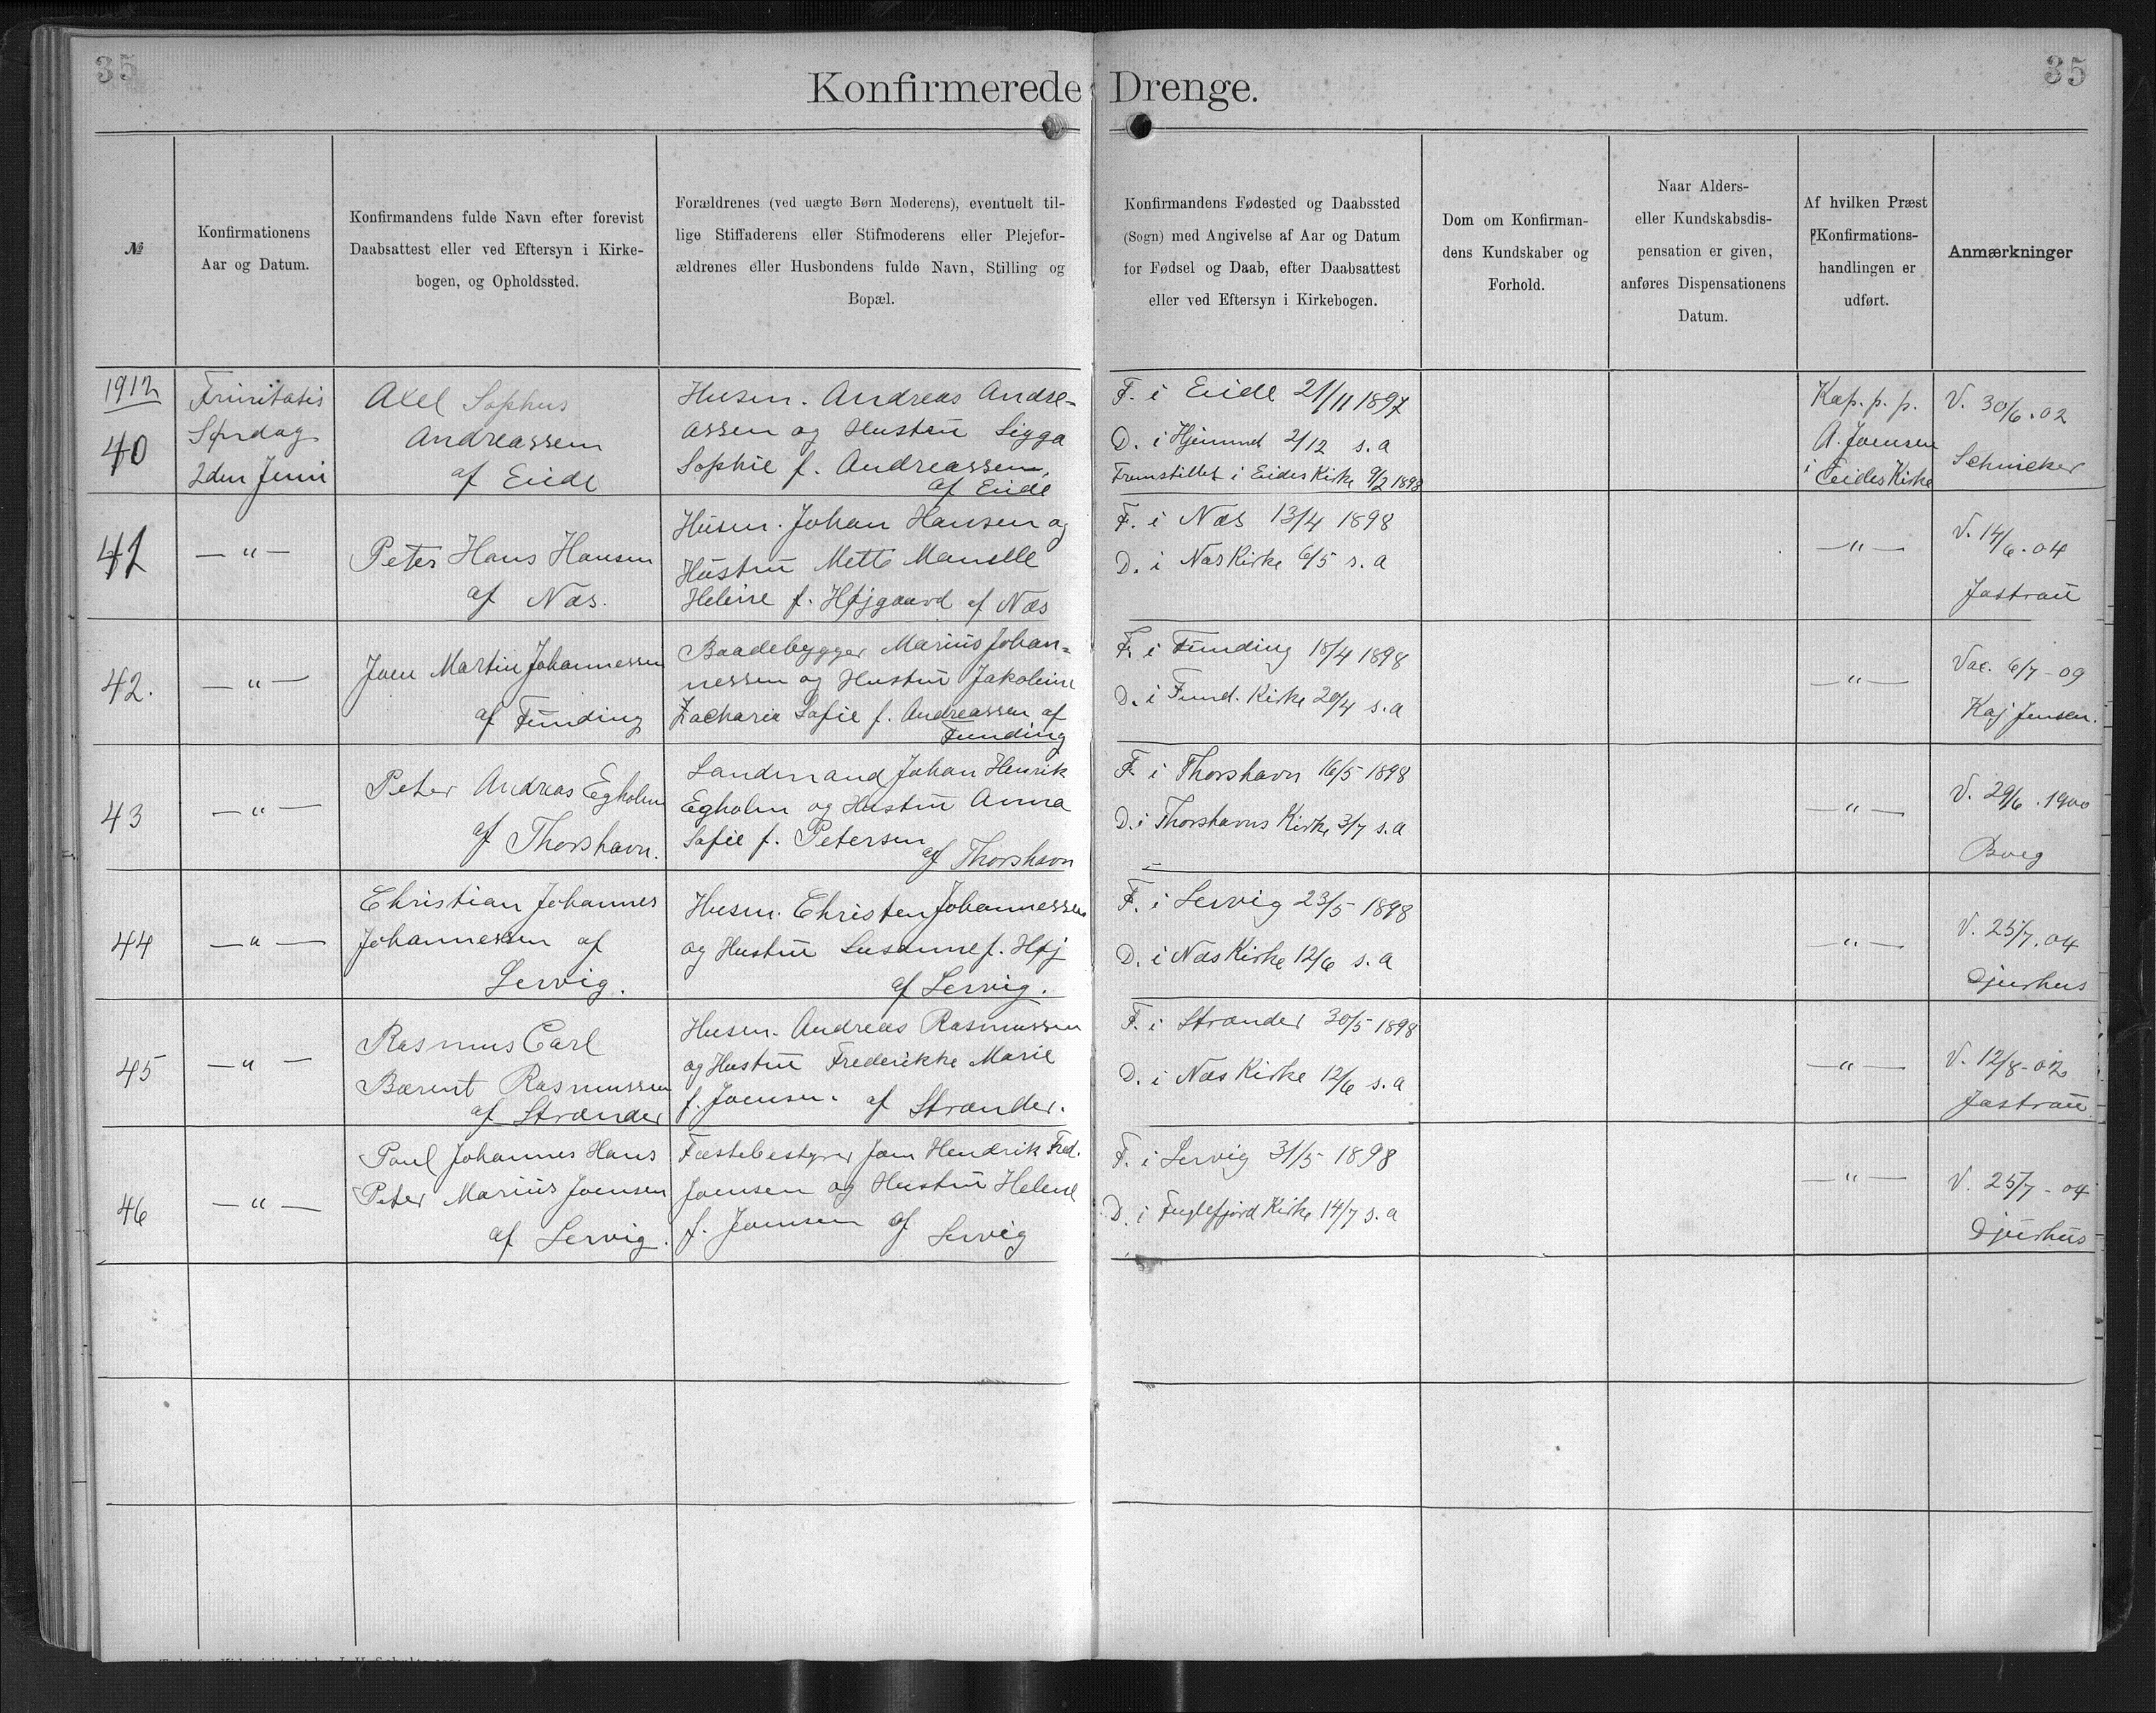 35
35
Konfirmerede Drenge.
№
Konfirmationens
Aar og Datum.
Konfirmandens fulde Navn efter forevist
Daabsattest eller ved Eftersyn i Kirke-
bogen, og Opholdssted.
Forældrenes (ved uægte Børn Moderens), eventuelt til-
lige Stiffaderens eller Stifmoderens eller Plejefor-
ældrenes eller Husbondens fulde Navn, Stilling og
Bopæl.
Konfirmandens Fødested og Daabssted
(Sogn) med Angivelse af Aar og Datum
for Fødsel og Daab, efter Daabsattest
eller ved Eftersyn i Kirkebogen.
Dom om Konfirman-
dens Kundskaber og
Forhold.
Naar Alders-
eller Kundskabsdis-
pensation er given,
anføres Dispensationens
Datum.
Af hvilken Præst
Konfirmations-
handlingen er
udført.
Anmærkninger
1912
40
Trinitatis
Søndag
2den Juni
Axel Sophus
Andreassen
af Eide
Husm. Andreas Andre-
assen og Hustru Sigga
Sophie f. Andreassen,
af Eide
F. i Eide 21/11 1897
D. i Hjemmet 2/12 s. a
Fremstillet i Eides Kirke 9/2 1898
Kap. p. p.
A. Joensen
i Eides Kirke
V. 30/6. 02
41
— " —
Peter Hans Hansen
af Næs.
Husm. Johan Hansen og
Hustru Mette
Helene f. Højgaard af Næs
F. i Næs 13/4 1898
D. i Næs Kirke 6/5 s. a
— " —
V. 14/6. 04
Jastrau
42.
— " —
Joen Martin Johannessen
af Funding
Baadebygger Marius Johan-
nessen og Hustru Jakobine
Zacharia Sofie f. Andreassen af
Funding
F. i Funding 18/4 1898
D. i Fund. Kirke 20/4 s. a
— " —
Vac. 6/7 - 09
Kaj Jensen.
43
— " —
Peter Andreas Egholm
af Thorshavn.
Landmand Johan Henrik
Egholm og Hustru Anna
Sofie f. Petersen
af Thorshavn
F. i Thorshavn 16/5 1898
D. i Thorshavns Kirke 3/7 s. a
— " —
V. 29/6. 1900
44
— " —
Christian Johannes
Johannessen af
Lervig.
Husm. Christen Johannessen
og Hustru Susanne f. Høj
af Lervig.
F. i Lervig 23/5 1898
D. i Næs Kirke 12/6 s. a
— " —
V. 25/7. 04
Djurhus
45
— " —
Rasmus Carl
Bærent Rasmussen
af Strænder
Husm. Andreas Rasmussen
og Hustru Frederikke Marie
f. Joensen. af Strænder.
F. i Strænder 30/5 1898
D. i Næs Kirke 12/6 s. a
— " —
V. 12/8 - 02
Jastrau
46
— " —
Poul Johannes Hans
Peter Marius Joensen
af Lervig.
Fæstebestyrer Joen Hendrik Fred.
Joensen og Hustru Helene
f. Joensen af Lervig
F. i Lervig 31/5 1898
D. i Fuglefjord Kirke 14/7 s. a
— " —
V. 25/7 - 04
Djurhus